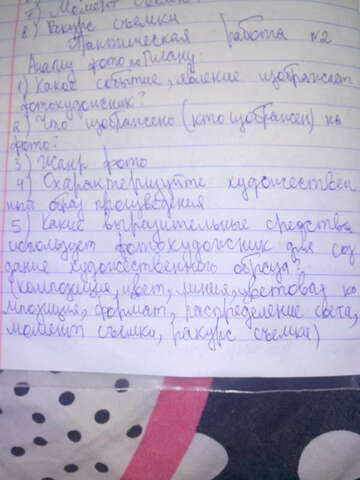 7) Момент съемки
8) Ракурс съемки
Практическая работа №2
Анализ фото по плану.
1) Какое событие, явление изображает
фотохудожник?
2) Что изображено (кто изображен) на
фото?
3) Жанр фото
4) Охарактеризуйте художествен
ный образ произведения
5) Какие выразительные средства
использует фотохудожник для соз
дания художественного образа?
(композиция, цвет, линия, цветовая ко
мпозиция, формат, распределение света,
момент съемки, ракурс съемки)